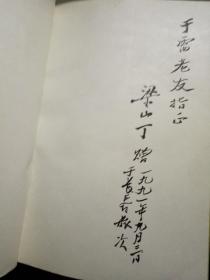 于雷老友指正
梁山丁 赠
一九九一年九月三日
于长春旅次